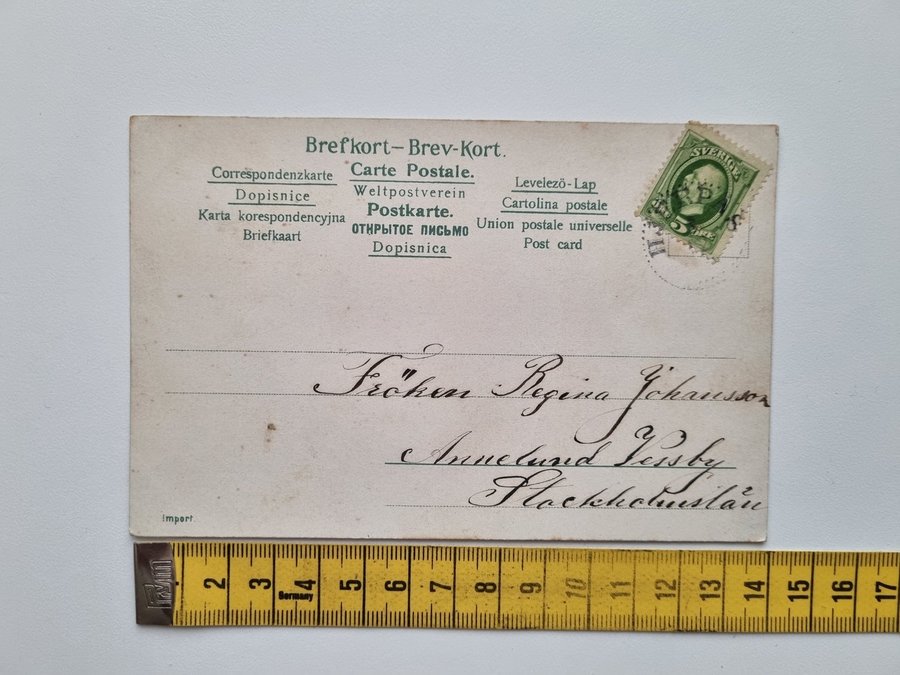 Brefkort–Brev-Kort.
Correspondenzkarte
Dopisnice
Karta korespondencyjna
Briefkaart
Carte Postale.
Weltpostverein
Postkarte.
ОТКРЫТОЕ ПИСЬМО
Dopisnica
Levelezö-Lap
Cartolina postale
Union postale universelle
Post card
SVERIGE
5
Fröken Regina Johansson
Annelund Vessby
Stockholmslän
Import
2 3 4 5 6 7 8 9 10 11 12 13 14 15 16 17
Germany